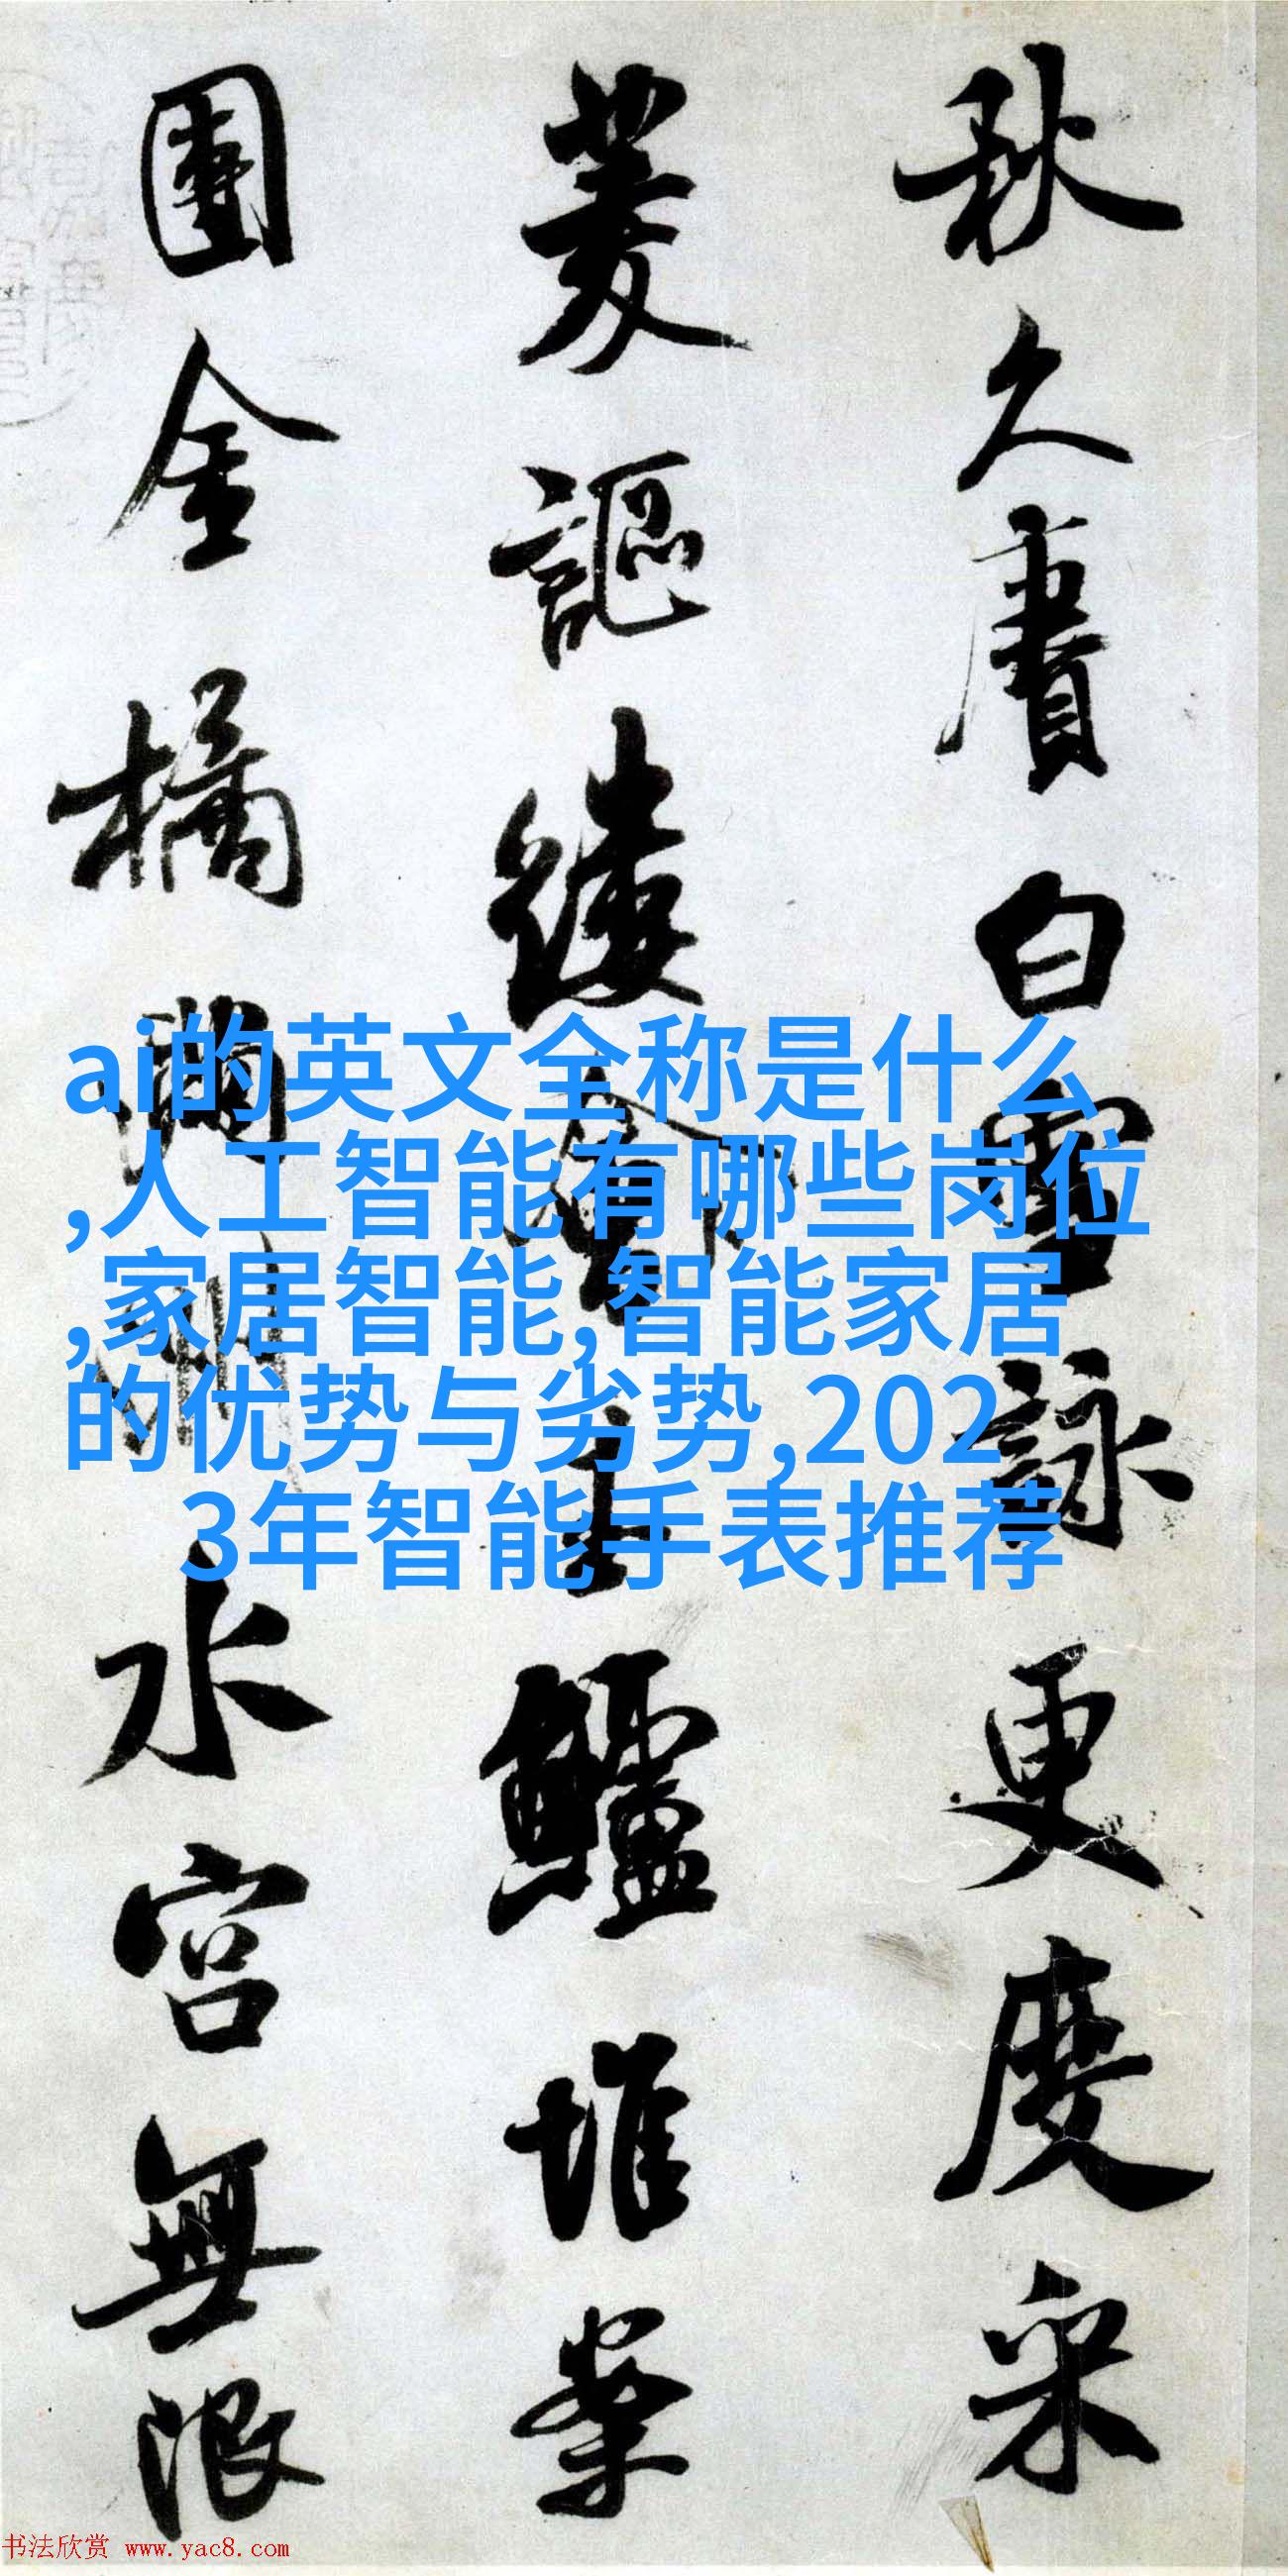 秋久賡白雪詠更度采
菱謳縷玉鱸堆案
團金橘滿洲水宮無限
ai的英文全称是什么
,人工智能有哪些岗位
,家居智能,智能家居
的优势与劣势,202
3年智能手表推荐
书法欣赏 www.yac8.com